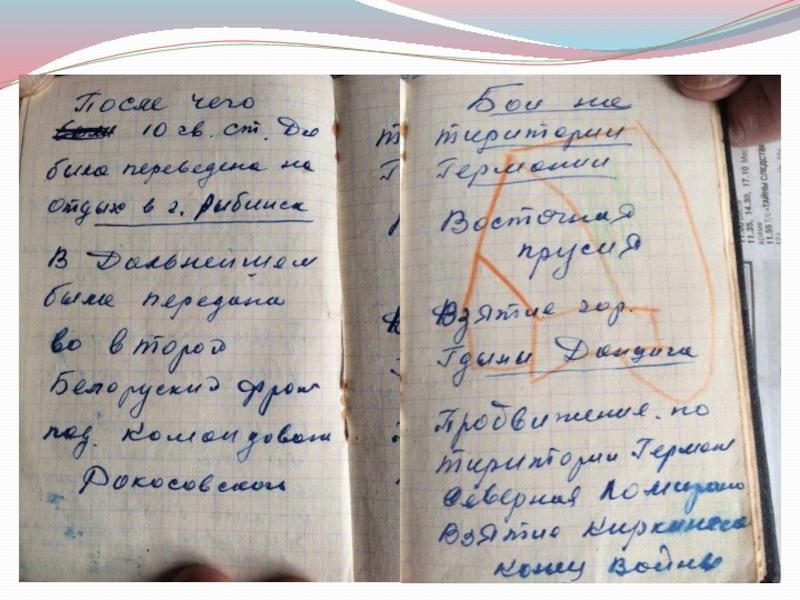 После чего
10 гв. ст. Ди
была переведена на
отдых в г. Рыбинск
В Дальнейшем
была передана
во второй
Белоруский фрон
под. командован
Рокосовского
Бои на
тиритории
Германии
Восточная
прусия
Взятие гор.
Гдыни Данцига
Продвижение. по
тиритории Герман
Северная Помирано
Взятие Киркинеса
конец войны
11.35, 14.30, 17.10
11.55 Т/с «ТАЙНЫ СЛЕДСТВИ